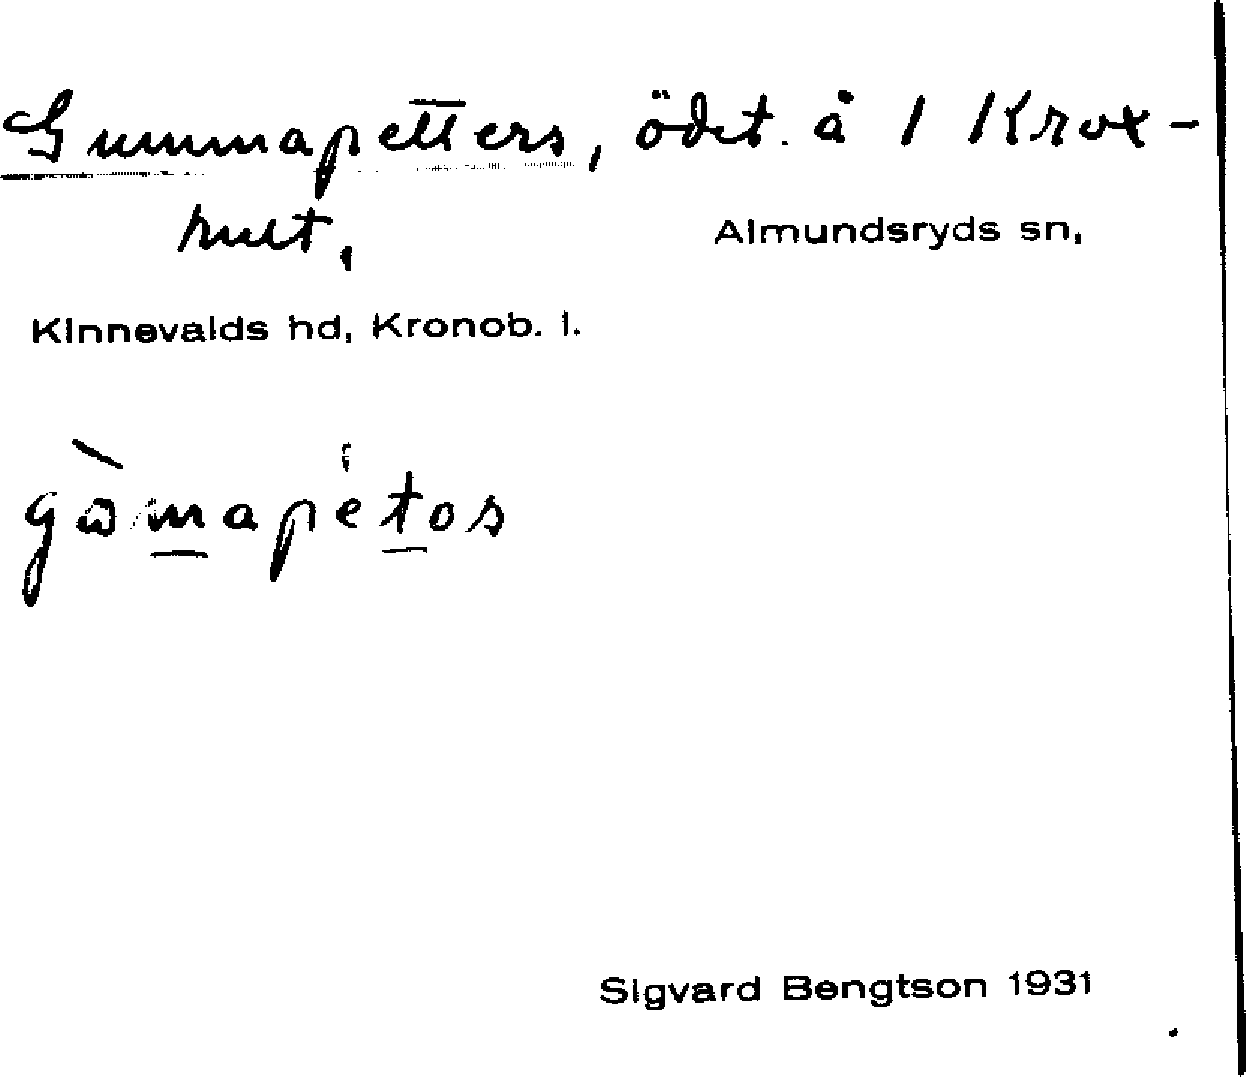 Gummapetters, ödet. å 1 Krox-
hult,
Almundsryds sn,
Kinnevalds hd, Kronob. l.
Sigvard Bengtson 1931